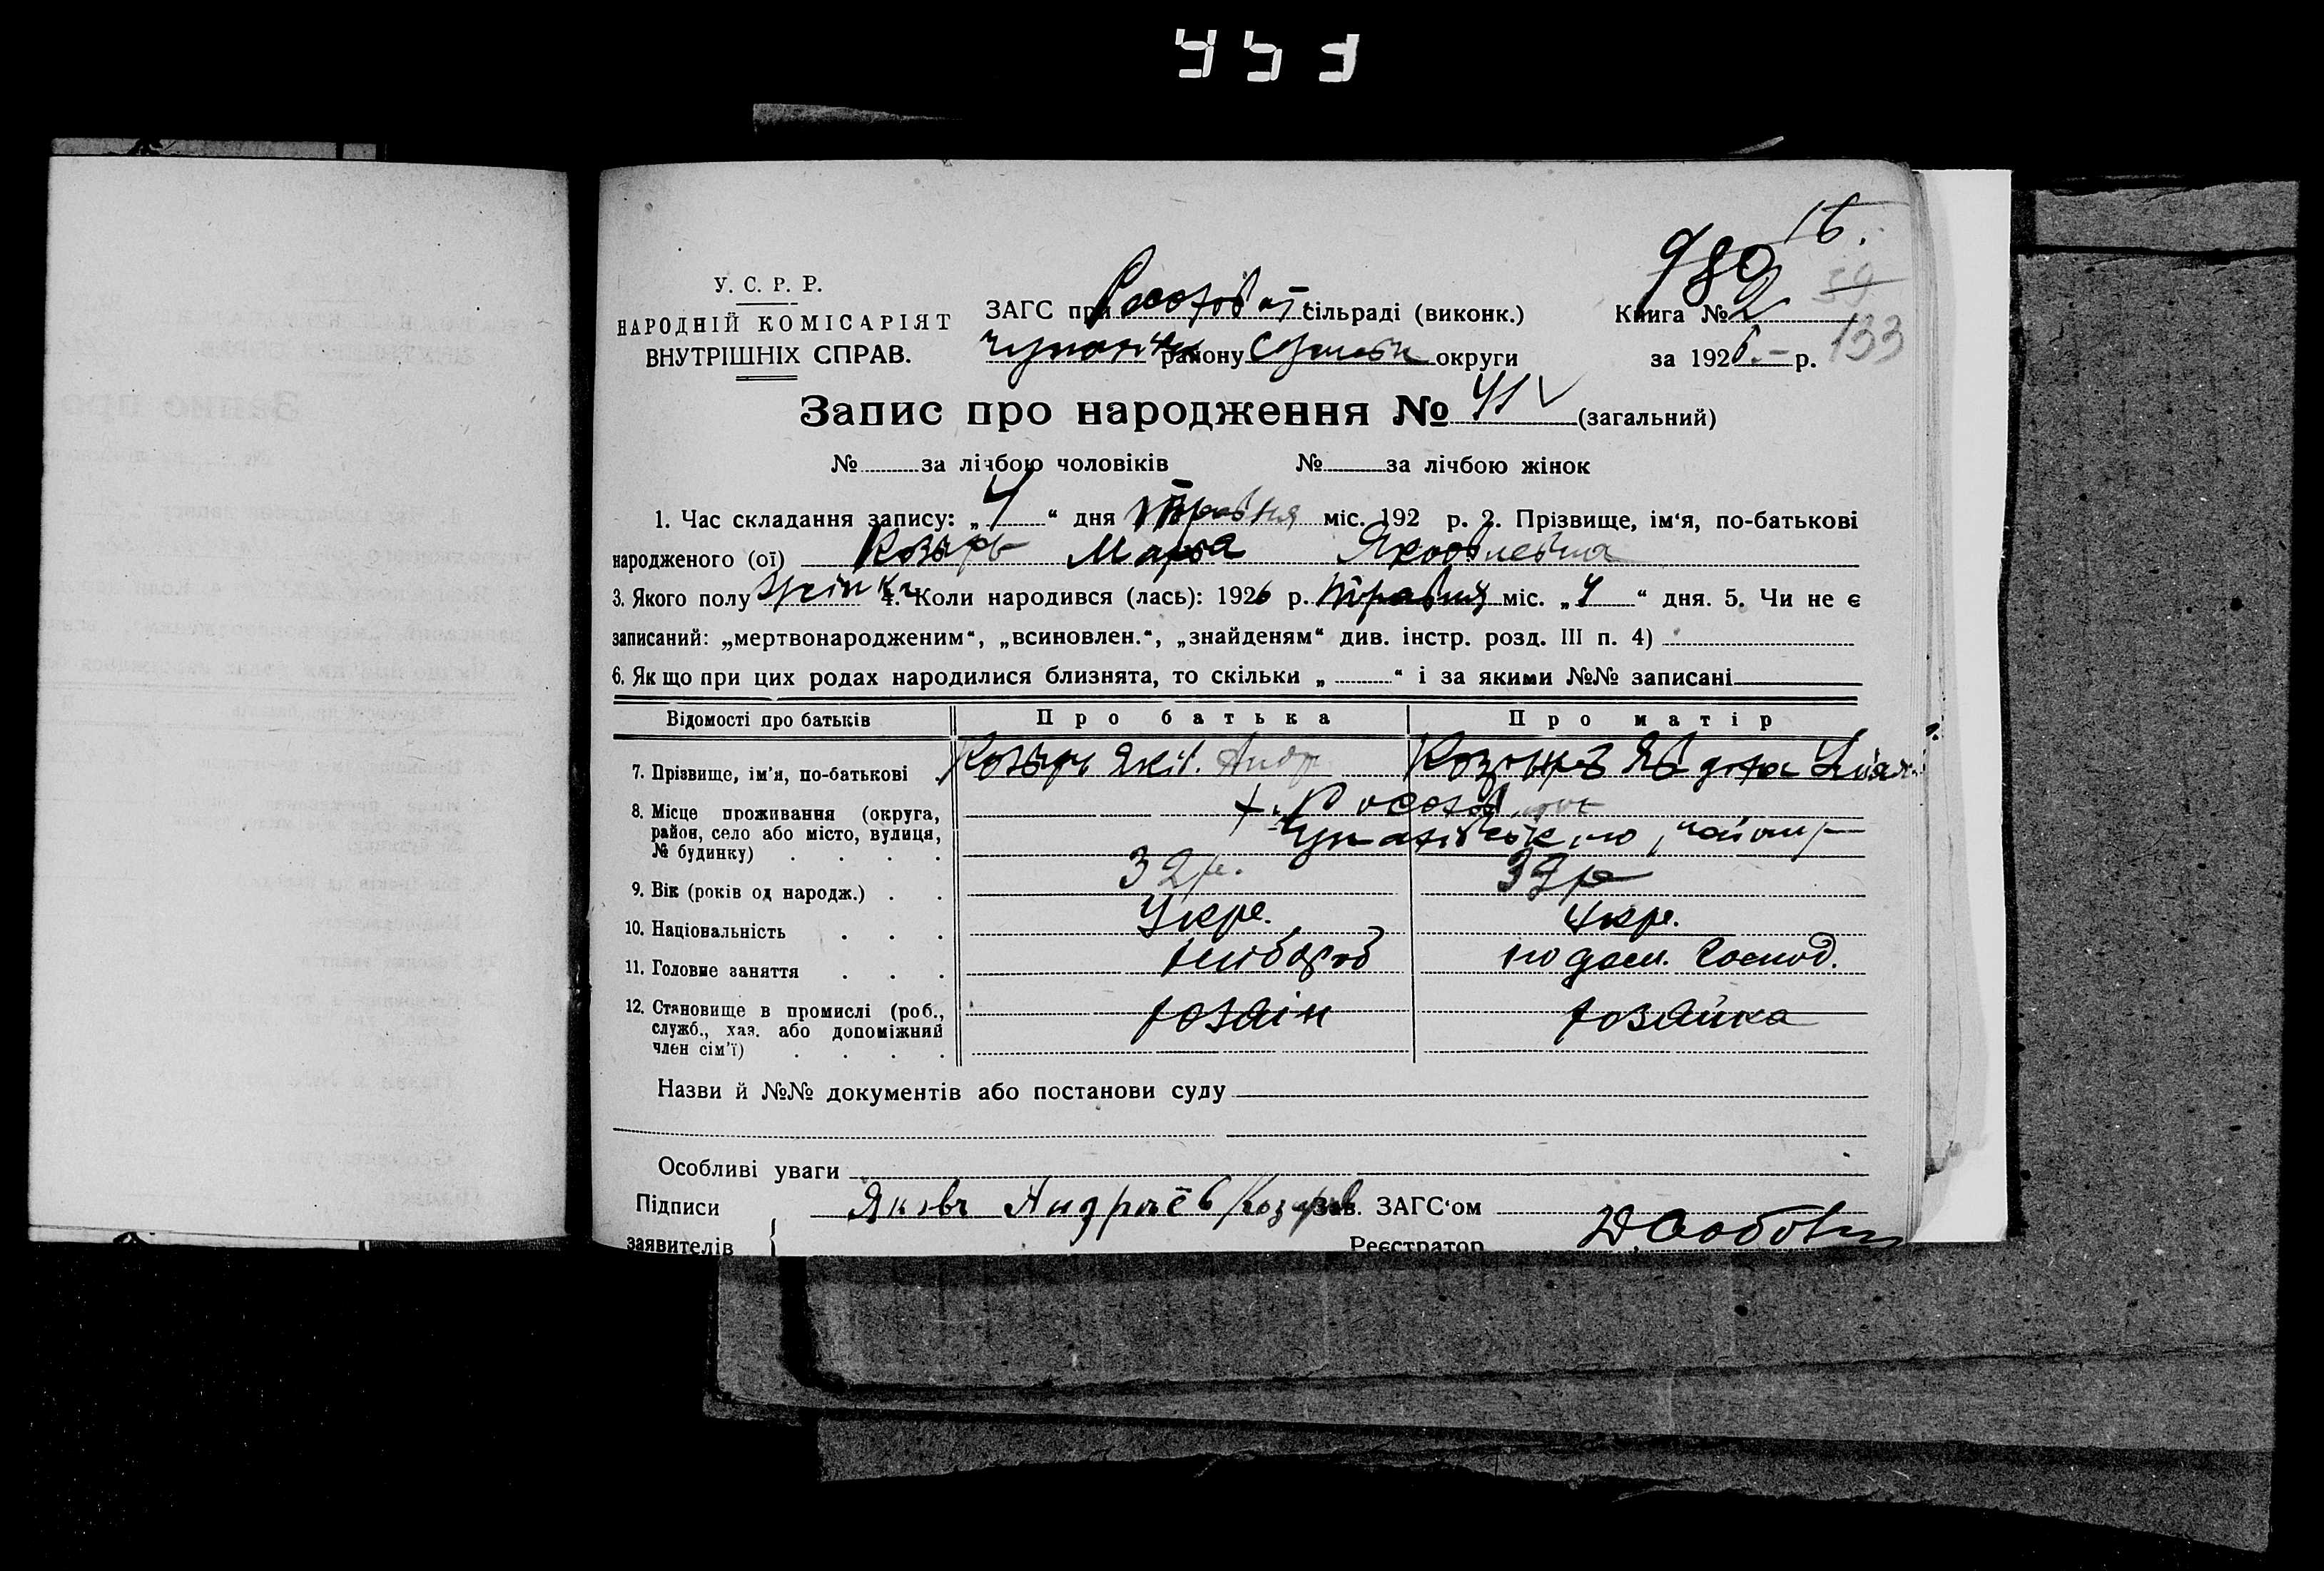 16.
980
39
У. С. Р. Р.
НАРОДНІЙ КОМІСАРІЯТ
ВНУТРІШНІХ СПРАВ.
ЗАГС при сільраді (виконк.)
району округи
Книга № 2
за 1926 р.
133
Запис про народження № 41 (загальний)
№ за лічбою чоловіків № за лічбою жінок
1. Час складання запису: „4“ дня травня міс. 192 р. 2. Прізвище, ім‘я, по-батькові
народженого (ої) Козырь Яковлевна
3. Якого полу жінка 4. Коли народився (лась): 1926 р. травня міс. „4“ дня. 5. Чи не є
записаний: „мертвонародженим“, „всиновлен.“, „знайденям“ див. інстр. розд. III п. 4)
6. Якщо при цих родах народилися близнята, то скільки „ “ і за якими №№ записані
Відомості про батьків Про батька Про матір
7. Прізвище, ім'я, по-батькові Козырь Яків. Андр Козырь Явдоха
8. Місце проживання (округа, район, село або місто, вулиця, № будинку)
9. Вік (років од народж.) 32 р. 32 р
10. Національність Укр. Укр.
11. Головне заняття хлібороб по дом. господ.
12. Становище в промислі (роб., служб., хаз. або допоміжний член сім'ї) хозаін хозайка
Назви й №№ документів або постанови суду
Особливі уваги
Підписи Яковъ Зав. ЗАГС‘ом
заявителів Реєстратор